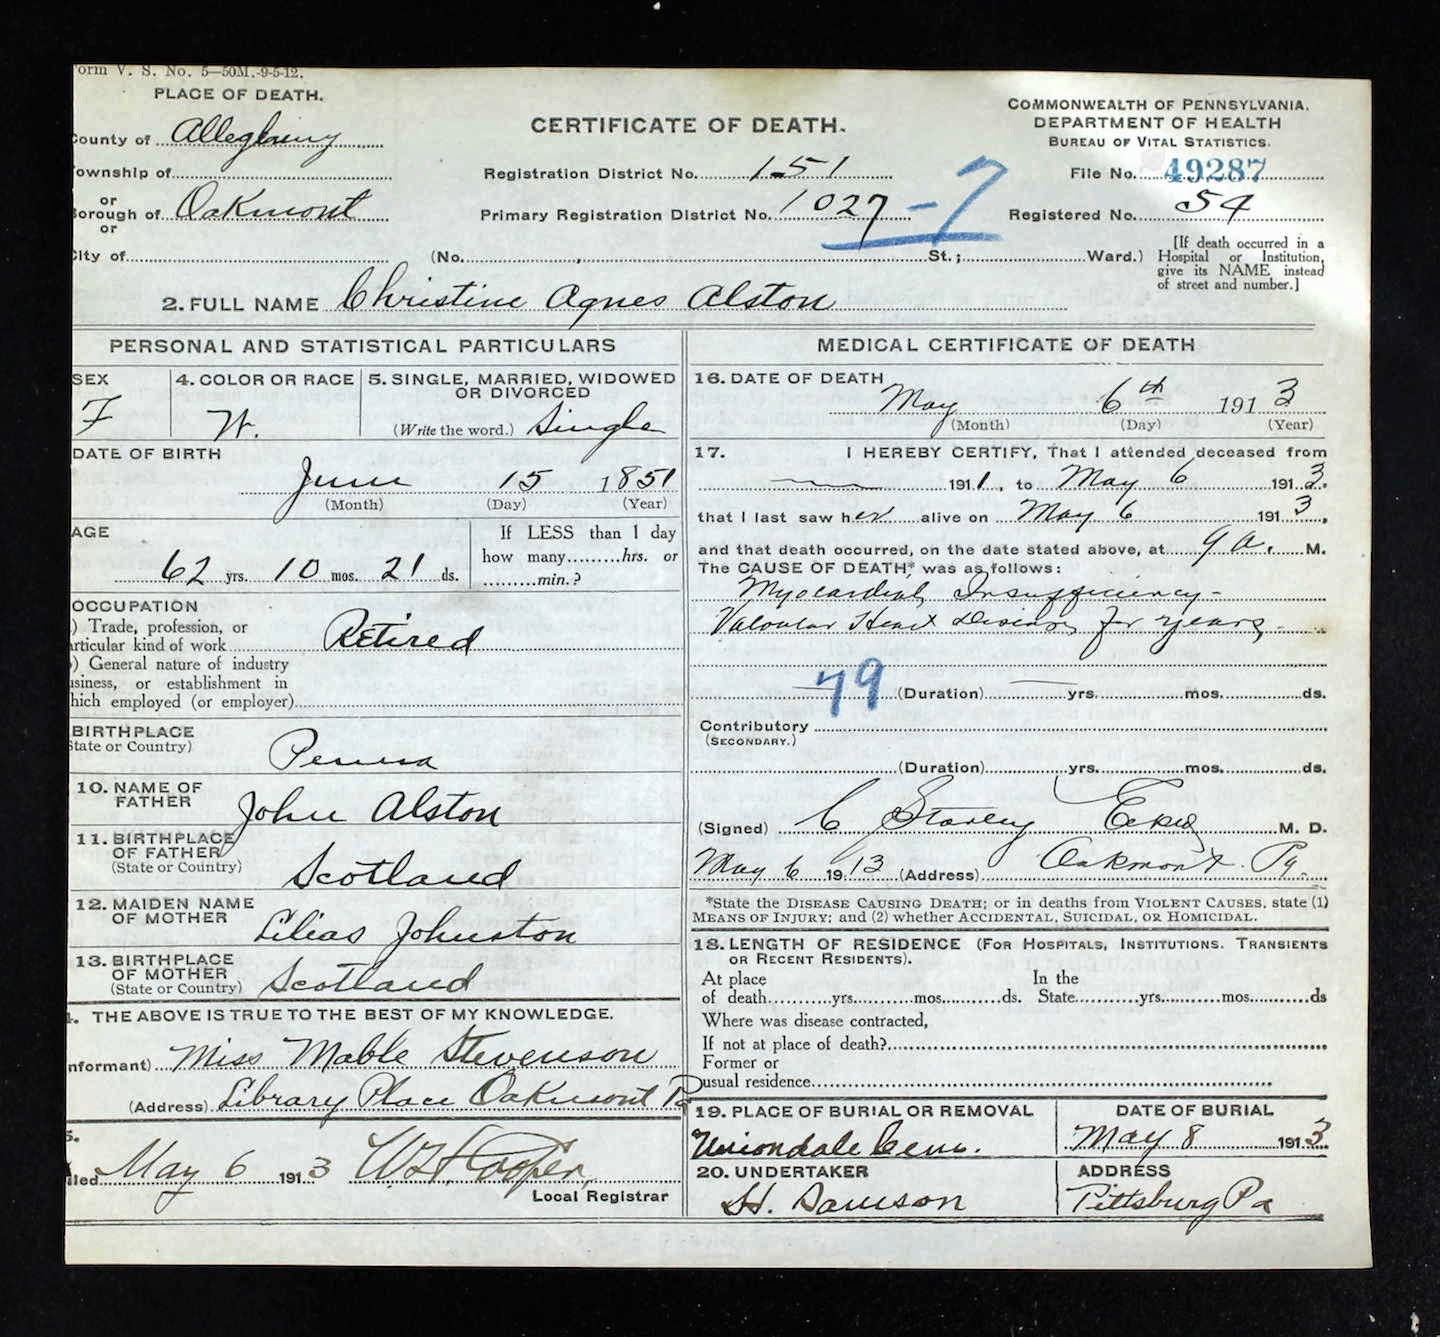 orm V. S. No. 5—50M.-9-5-12.
PLACE OF DEATH.
County of Allegheny
Township of
or
Borough of Oakmont
or
City of
CERTIFICATE OF DEATH.
Registration District No. 151
Primary Registration District No. 1027 - 7
(No. , St.; Ward.)
COMMONWEALTH OF PENNSYLVANIA.
DEPARTMENT OF HEALTH
BUREAU OF VITAL STATISTICS.
File No. 49287
Registered No. 54
[If death occurred in a
Hospital or Institution,
give its NAME instead
of street and number.]
2. FULL NAME Christine Agnes Alston
PERSONAL AND STATISTICAL PARTICULARS
SEX
F
4. COLOR OR RACE
W.
5. SINGLE, MARRIED, WIDOWED
OR DIVORCED
(Write the word.) Single
DATE OF BIRTH
June 15 1851
(Month) (Day) (Year)
AGE
62 yrs. 10 mos. 21 ds.
If LESS than 1 day
how many hrs. or
min.?
OCCUPATION
) Trade, profession, or
articular kind of work Retired
) General nature of industry
usiness, or establishment in
hich employed (or employer)
BIRTHPLACE
State or Country)
Penna
10. NAME OF
FATHER
John Alston
11. BIRTHPLACE
OF FATHER
(State or Country)
Scotland
12. MAIDEN NAME
OF MOTHER
Lilias Johnston
13. BIRTHPLACE
OF MOTHER
(State or Country)
Scotland
. THE ABOVE IS TRUE TO THE BEST OF MY KNOWLEDGE.
nformant) Miss Mable Stevenson
(Address) Library Place Oakmont Pa
5.
iled May 6 1913 W. H. Hooper,
Local Registrar
MEDICAL CERTIFICATE OF DEATH
16. DATE OF DEATH
May 6th 1913
(Month) (Day) (Year)
17. I HEREBY CERTIFY, That I attended deceased from
1911, to May 6 1913.
that I last saw her alive on May 6 1913,
and that death occurred, on the date stated above, at 9 a. M.
The CAUSE OF DEATH* was as follows:
Myocardial Insufficiency -
Valvular Heart Disease for years
79 (Duration) yrs. mos. ds.
Contributory
(SECONDARY.)
(Duration) yrs. mos. ds.
(Signed) C M. D.
May 6 1913 (Address) Oakmont. Pa.
*State the DISEASE CAUSING DEATH; or in deaths from VIOLENT CAUSES, state (1)
MEANS OF INJURY; and (2) whether ACCIDENTAL, SUICIDAL, OR HOMICIDAL.
18. LENGTH OF RESIDENCE (FOR HOSPITALS, INSTITUTIONS. TRANSIENTS
OR RECENT RESIDENTS).
At place
of death yrs. mos. ds.
In the
State yrs. mos. ds
Where was disease contracted,
If not at place of death?
Former or
usual residence
19. PLACE OF BURIAL OR REMOVAL
Uniondale Cem.
DATE OF BURIAL
May 8 1913.
20. UNDERTAKER
H. Samson
ADDRESS
Pittsburg Pa